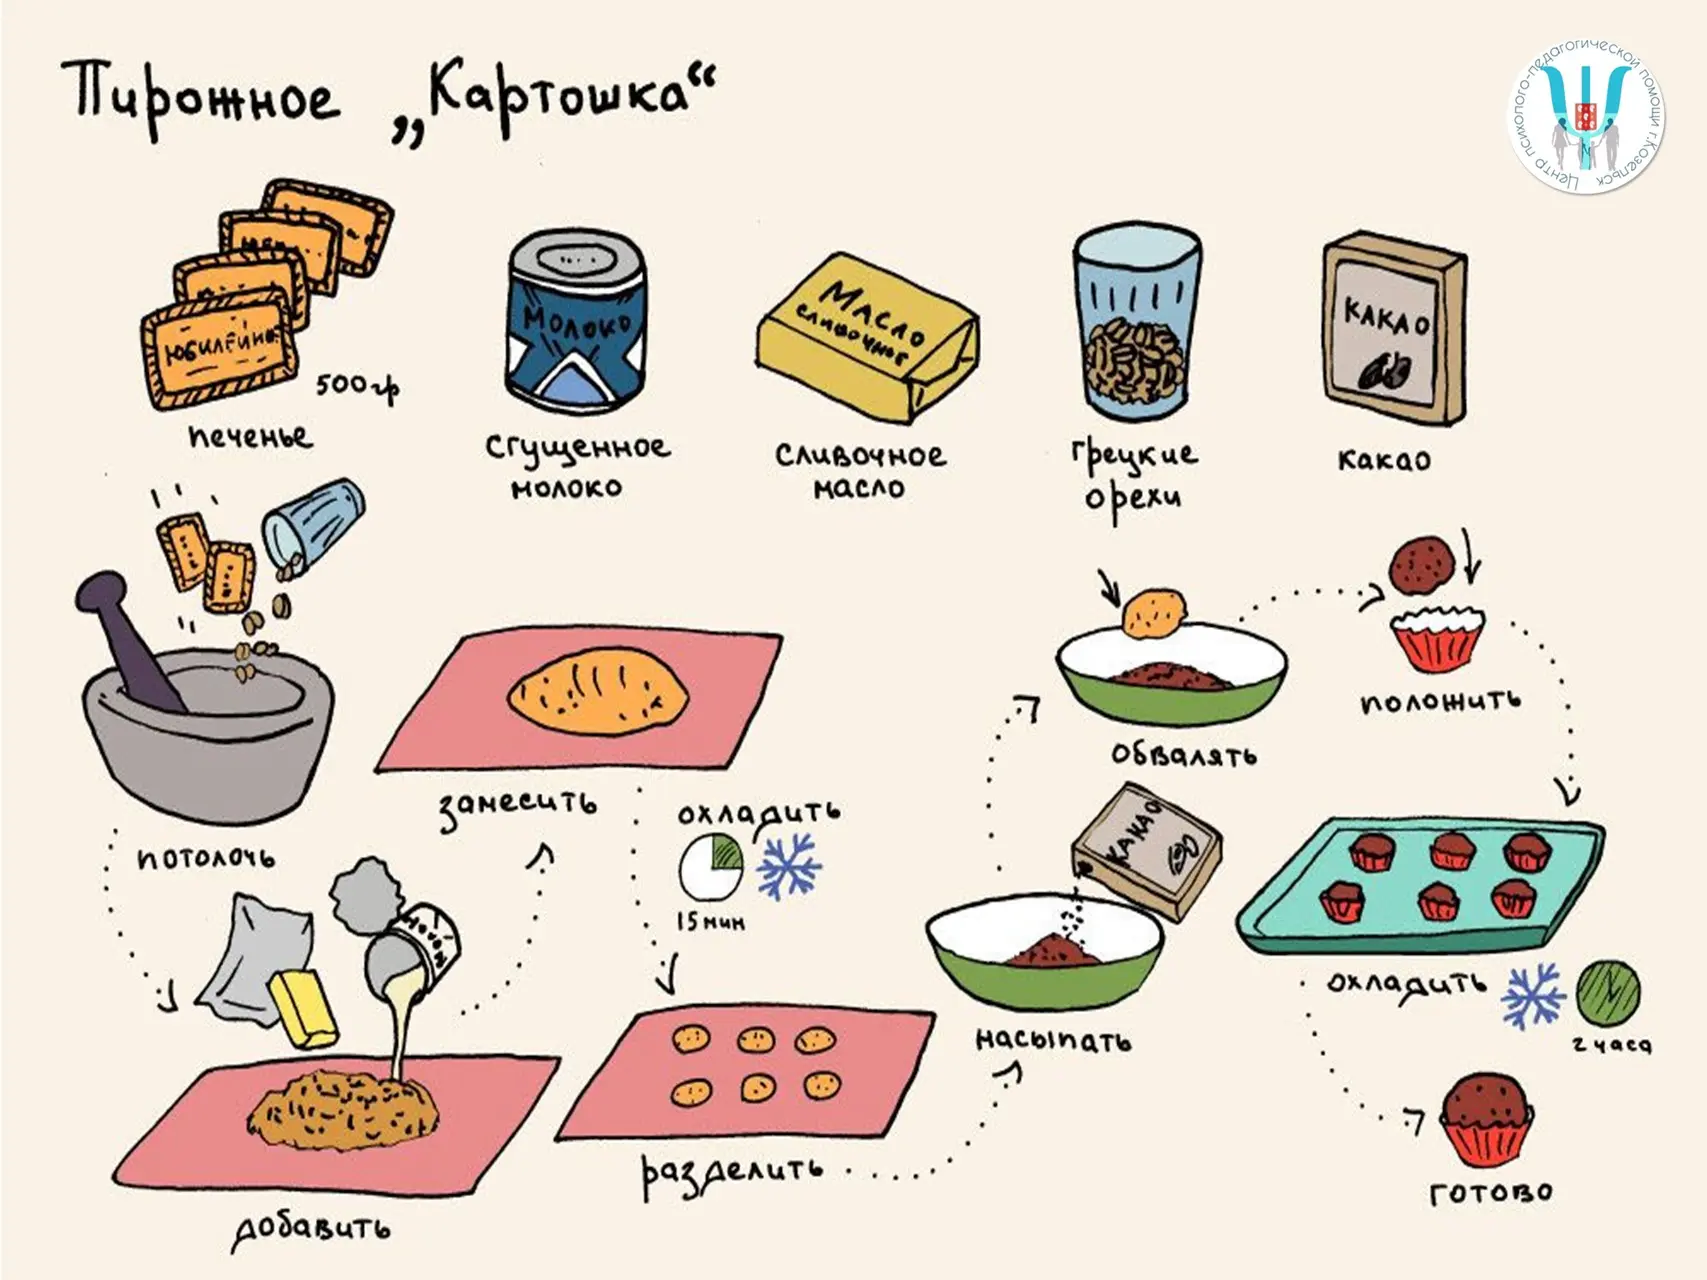 Пирожное „Картошка“
Центр психолого-педагогической помощи г.Козельск
ЮБИЛЕЙНОЕ
500гр
печенье
МОЛОКО
сгущенное
молоко
МАСЛО
сливочное
сливочное
масло
грецкие
орехи
КАКАО
какао
потолочь
замесить
охладить
15 мин
добавить
разделить
КАКАО
насыпать
обвалять
положить
охладить
2 часа
готово